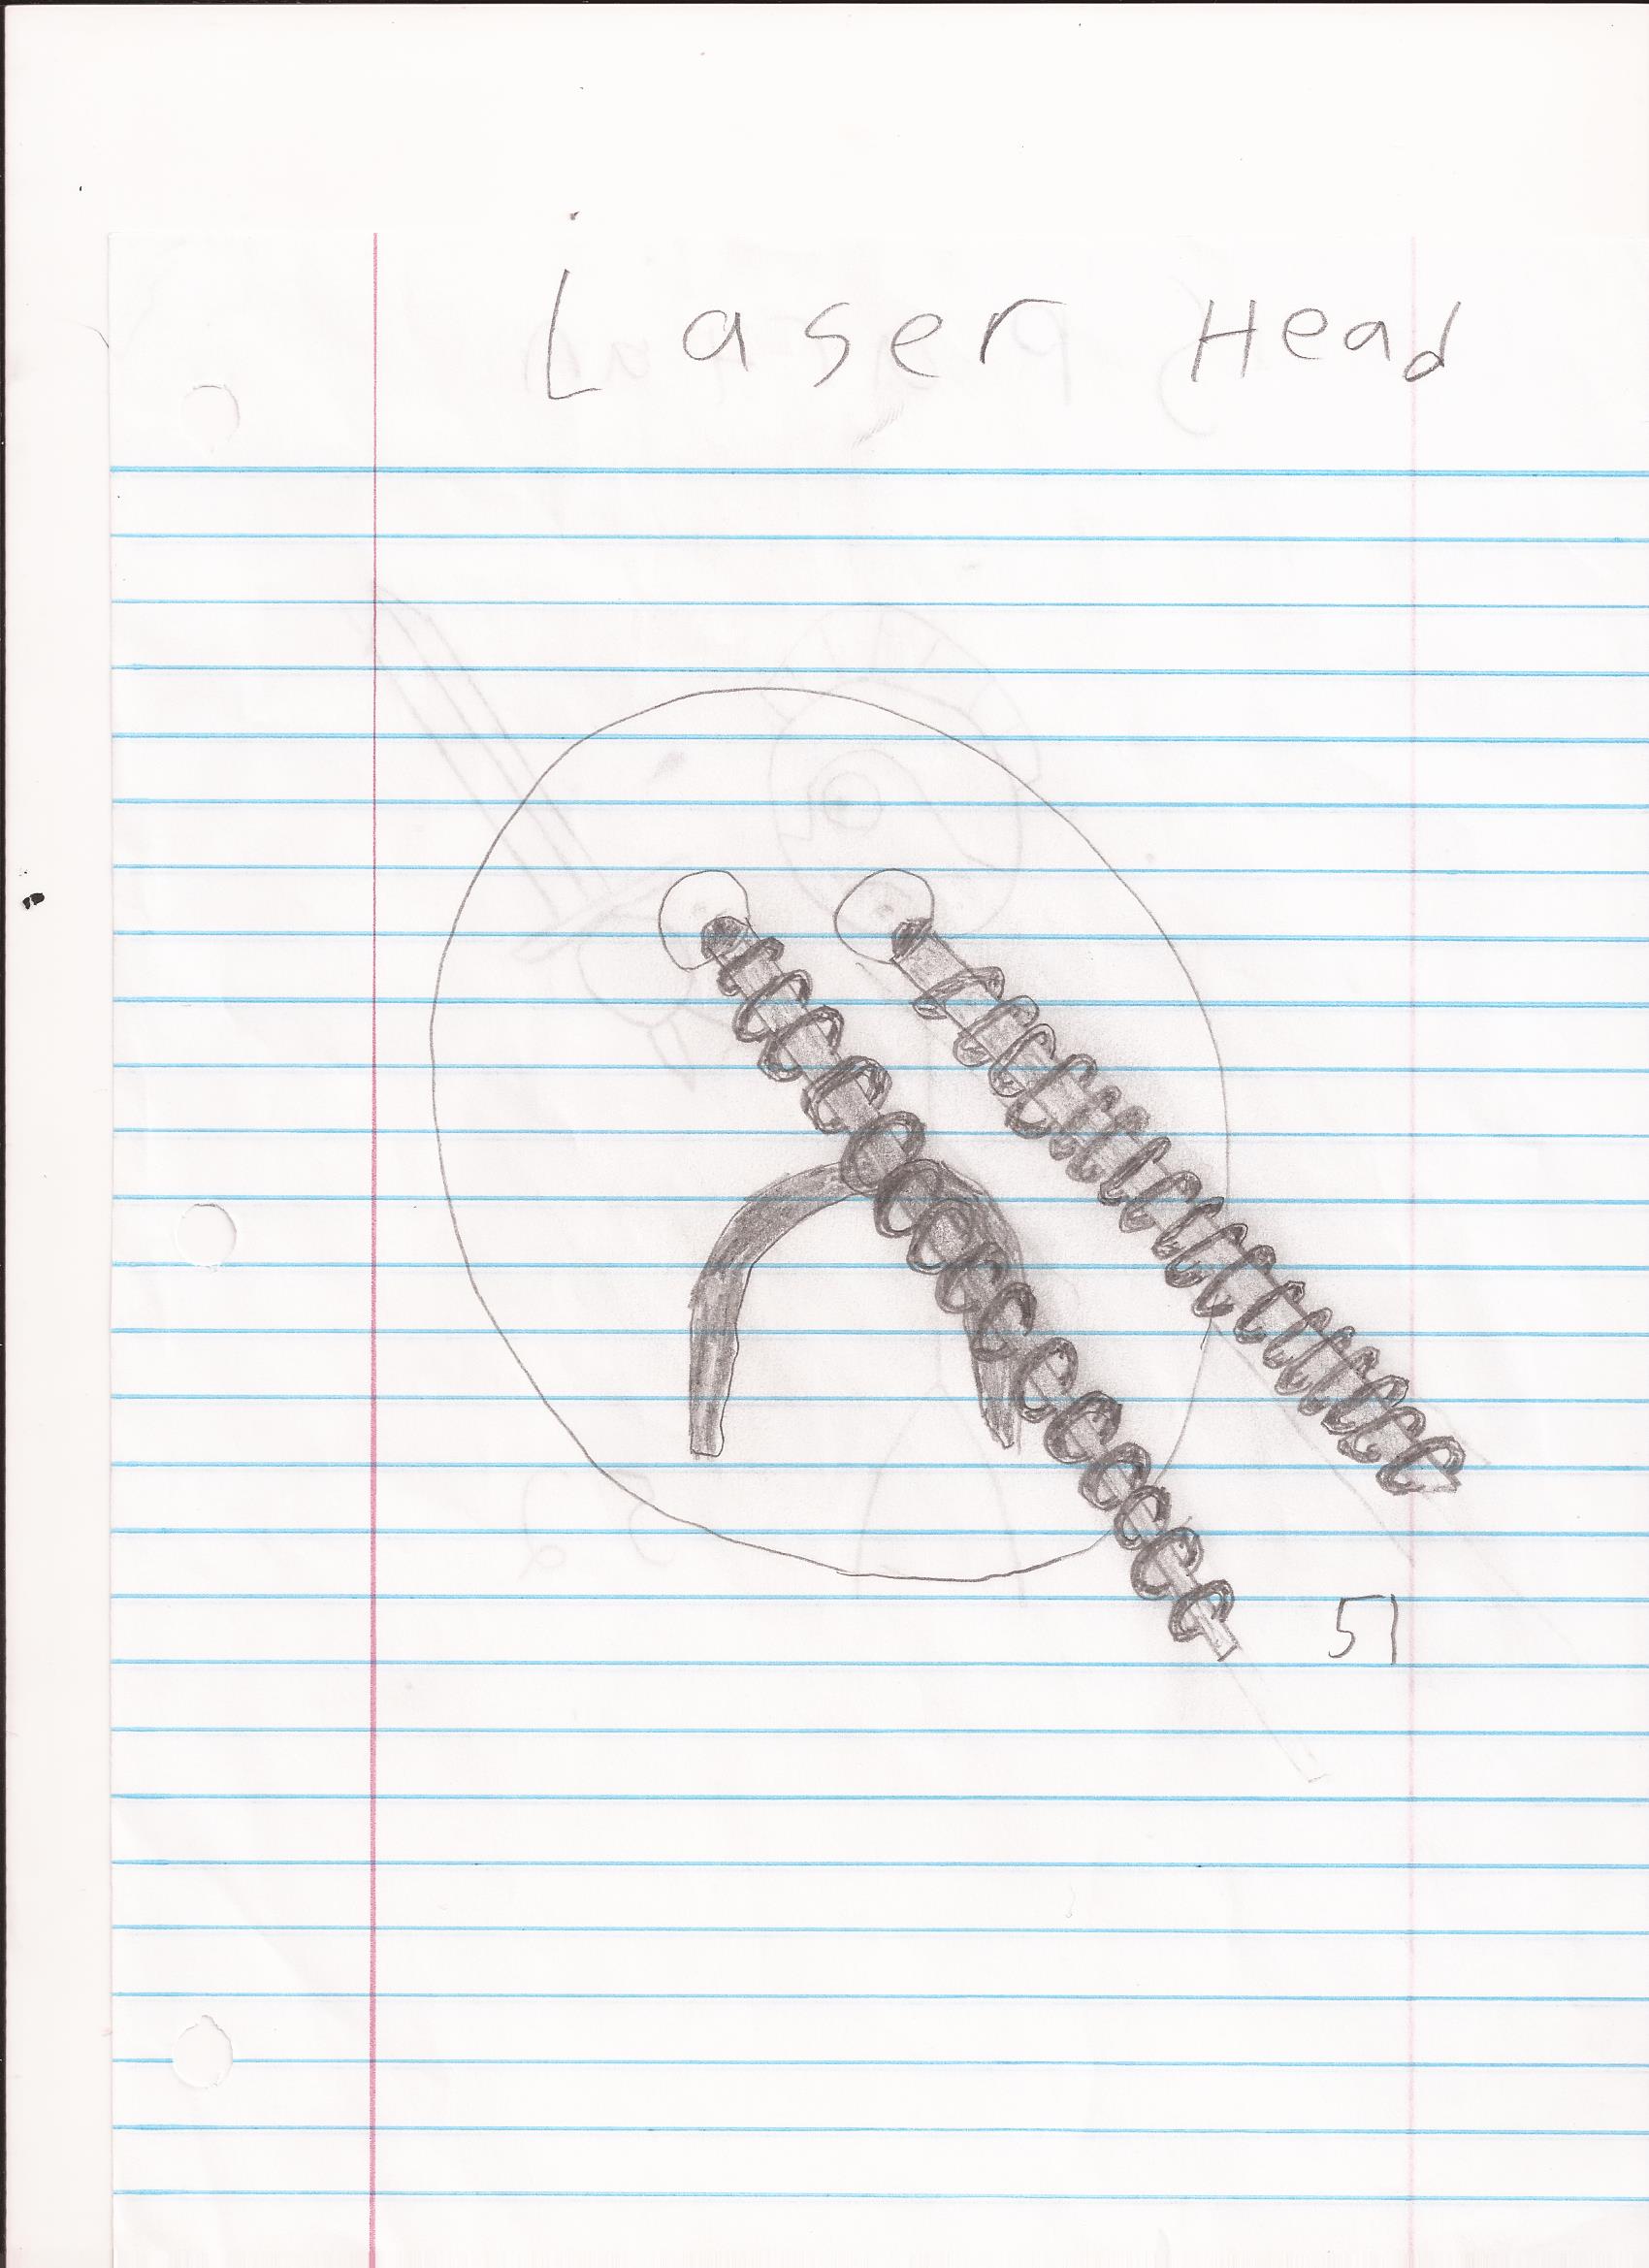 Laser Head
51